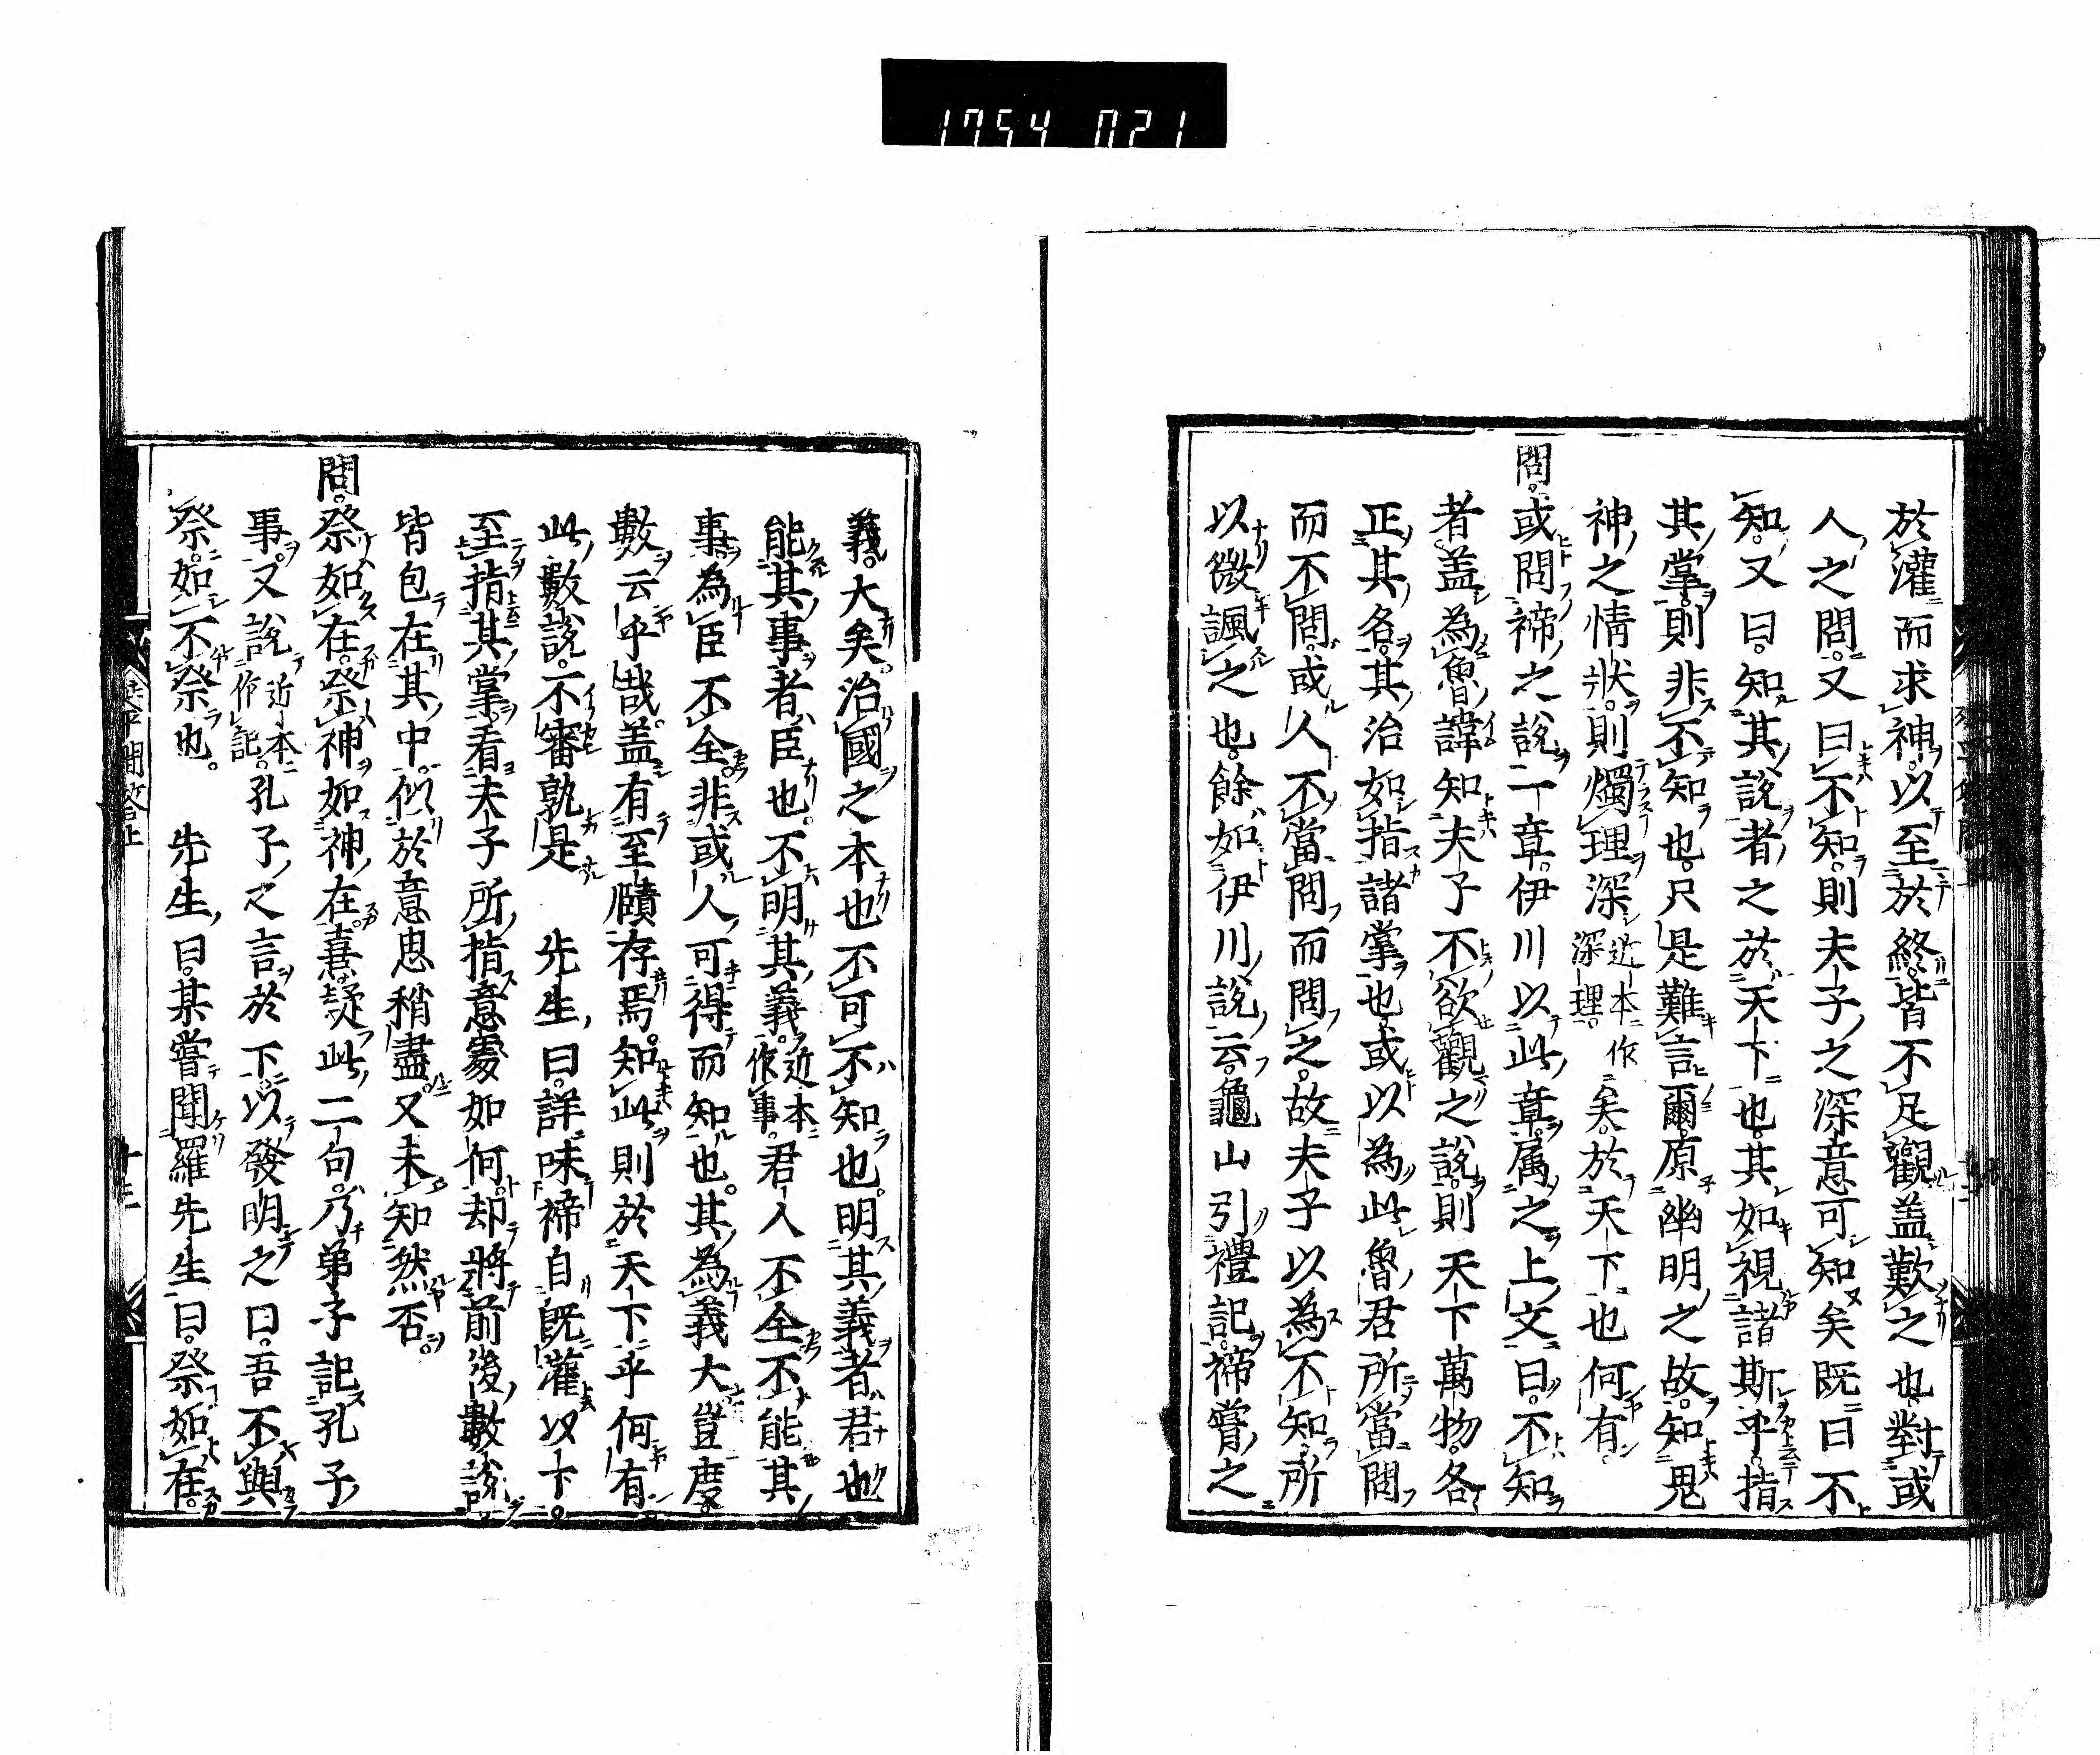 1754 021
於灌而求神以至於終皆不足觀盖歎之也對或
人之問又曰不知則夫子之深意可知矣既曰不
知又曰知其說者之於天下也其如視諸斯乎指
其掌則非不知也只是難言爾原幽明之故知鬼
神之情狀則燭理深近本作深理矣於天下也何有
問或問禘之說一章伊川以此章属之上文曰不知
者盖為魯諱知夫子不欲觀之說則天下萬物各
正其名其治如指諸掌也或以為此魯君所當問
而不問或人不當問而問之故夫子以為不知所
以微諷之也餘如伊川說云龜山引禮記禘嘗之
義大矣治國之本也不可不知也明其義者君也
能其事者臣也不明其義近本作事君人不全不能其
事為臣不全非或人可得而知也其為義大豈度
數云乎哉盖有至賾存焉知此則於天下乎何有
此數說不審孰是 先生曰詳味禘自既灌以下
至指其掌看夫子所指意處如何却將前後數說
皆包在其中似於意思稍盡又未知然否
問祭如在祭神如神在熹疑此二句乃弟子記孔子
事又說近本作記孔子之言於下以發明之曰吾不與
祭如不祭也 先生曰某嘗聞羅先生曰祭如在